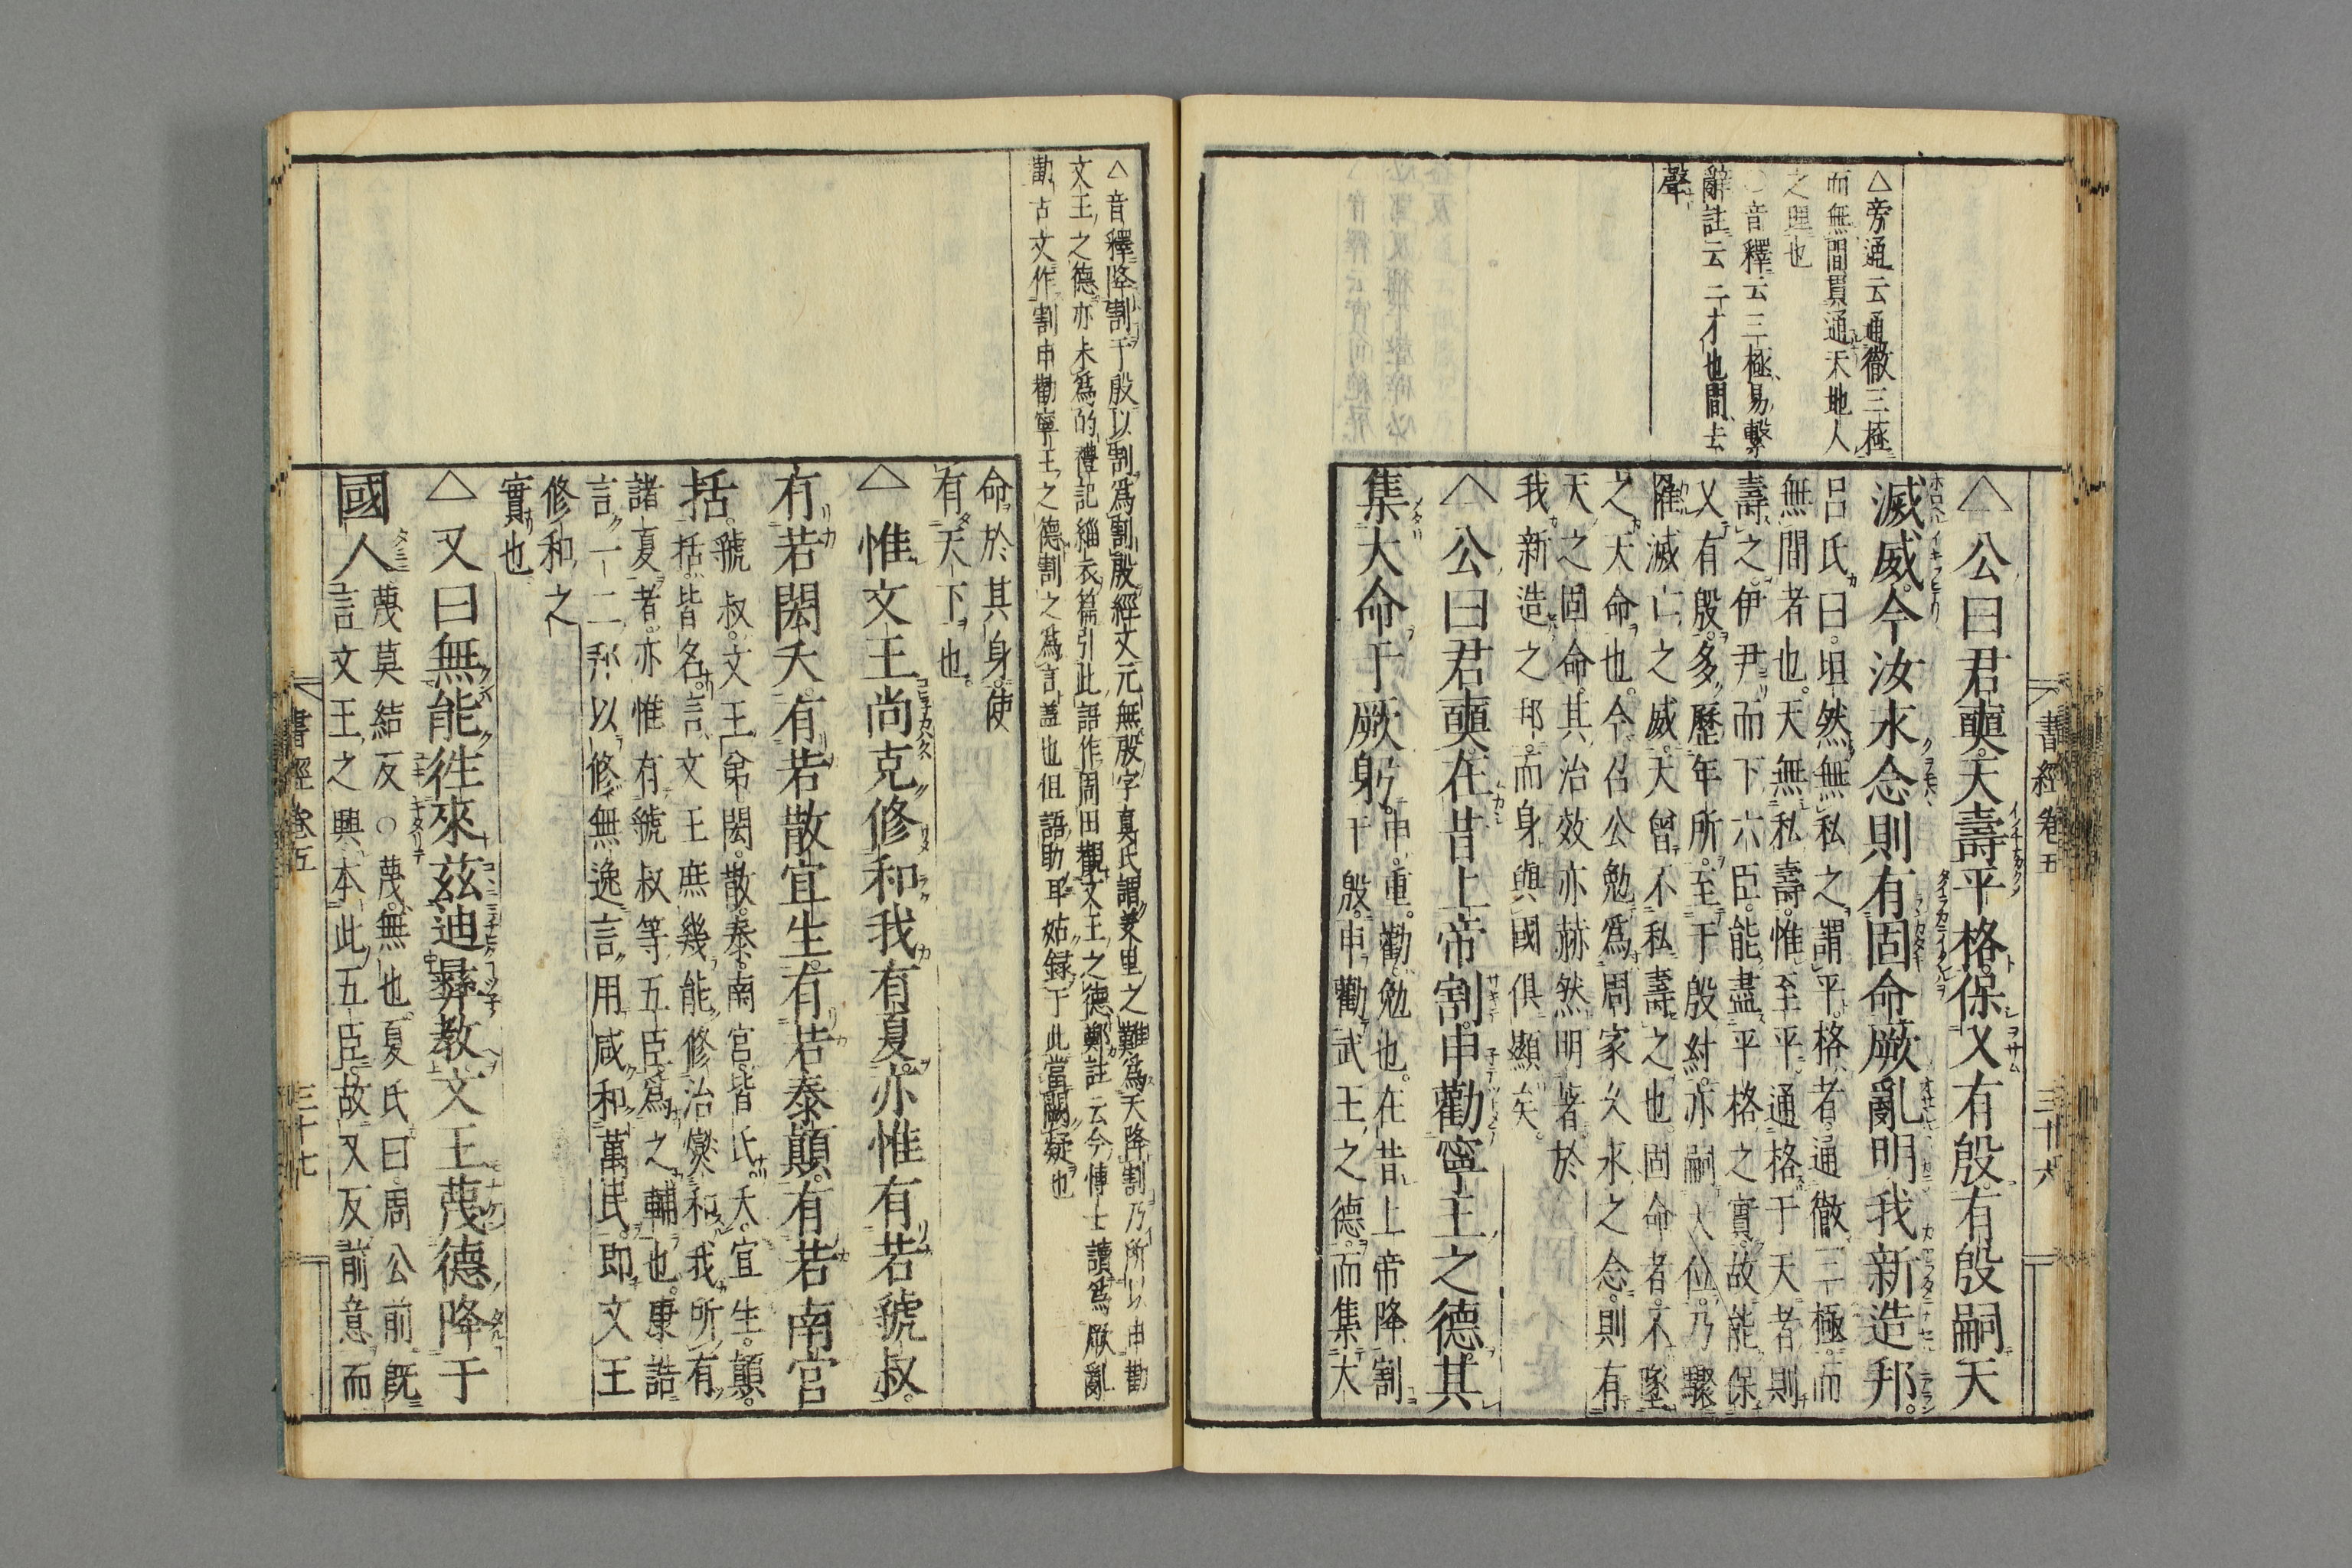 書經卷五
三十六
△旁通云通徹三極
而無間貫通天地人
之理也
○音釋云三極易繫
辭註云三才也間去
聲
△公曰君奭天壽平格保乂有殷有殷嗣天
滅威今汝永念則有固命厥亂明我新造邦
呂氏曰坦然無私之謂平格者通徹三極而
無間者也天無私壽惟至平通格于天者則
壽之伊尹而下六臣能盡平格之實故能保
乂有殷多歷年所至于殷紂亦嗣天位乃驟
罹滅亡之威天曾不私壽之也固命者不墜
之天命也今召公勉爲周家久永之念則有
天之固命其治效亦赫然明著於
我新造之邦而身與國俱顯矣
△公曰君奭在昔上帝割申勸寧王之德其
集大命于厥躬
申重勸勉也在昔上帝降割
于殷申勸武王之德而集大
△音釋降割于殷以割爲割殷經文元無殷字眞氏謂羑里之難爲天降割乃所以申勸
文王之德亦未爲的禮記緇衣篇引此語作周田觀文王之德鄭註云今博士讀爲厥亂
勸古文作割申勸寧王之德割之爲言蓋也但語助耳姑録于此當闕疑也
命於其身使
有天下也
△惟文王尚克修和我有夏亦惟有若虢叔
有若閎夭有若散宜生有若泰顛有若南宮
括
虢叔文王弟閎散泰南宮皆氏夭宜生顛
括皆名言文王庶幾能修治爕和我所有
諸夏者亦惟有虢叔等五臣爲之輔也康誥
言一二邦以修無逸言用咸和萬民即文王
修和之
實也
△又曰無能往來茲迪彝教文王蔑德降于
國人
蔑莫結反○蔑無也夏氏曰周公前既
言文王之興本此五臣故又反前意而
書經卷五
三十七